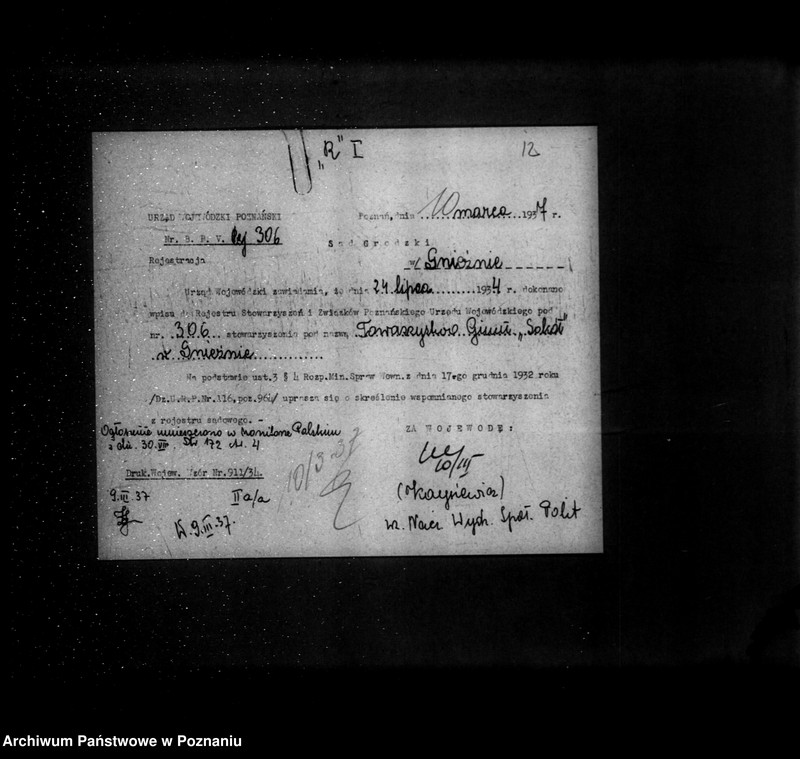 „R" I
12
URZĄD WOJEWÓDZKI POZNAŃSKI
Poznań, dnia 10 marca 1937 r.
Nr. B. P. V. Rej 306
Sąd Grodzki
Rejestracja
w/ Gnieźnie
Urząd Wojewódzki zawiadamia, że dnia 24 lipca 1934 r. dokonano
wpisu do Rejestru Stowarzyszeń i Związków Poznańskiego Urzędu Wojewódzkiego pod
nr. 306 stowarzyszenia pod nazwą Towarzystwo Gimn. „Sokół"
w Gnieźnie
Na podstawie ust.3 § 4 Rozp.Min.Spraw Wewn.z dnia 17-go grudnia 1932 roku
/Dz.U.R.P.Nr.116,poz.964/ uprasza się o skreślenie wspomnianego stowarzyszenia
z rejestru sądowego. -
Ogłoszenie umieszczono w Monitorze Polskim
z dn. 30.VIII. Nr 172
ZA WOJEWODĘ:
10/III
10/3.37
Druk.Wojew. Wzór Nr.911/34.
9.III.37
II a/a
W. 9.III.37.
wz. Nacz. Wydz. Społ. Polit
Archiwum Państwowe w Poznaniu